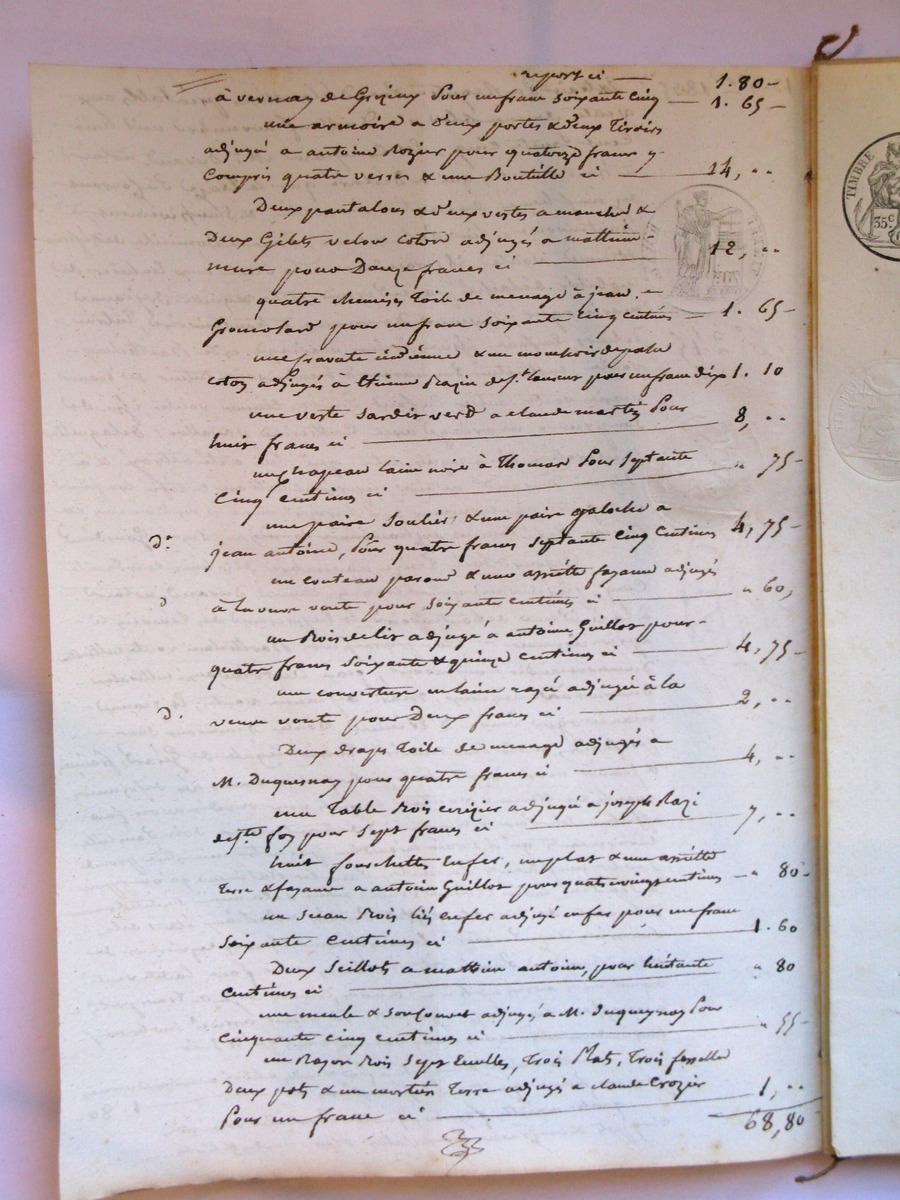 report ci — 1. 80 –
à vernay de Grézieux pour un franc soixante cinq — 1. 65 –
une armoire a deux portes & deux Tiroirs
adjugée a antoine Rozier pour quatorze francs y
compris quatre verres & une Bouteille ci — 14, "
Deux pantalons & deux vestes a manche &
Deux Gilets velour coton adjugés a mathieu
mure pour Douze francs ci — 12, "
quatre chemises Toile de menage à jean
pour un franc soixante cinq centimes — 1. 65 –
une cravate indienne & un mouchoir de poche
coton adjugés à Etienne Razin de St. pour un franc dix 1. 10
une veste sardis verd a claude martin pour
huit francs ci — 8, "
un chapeau laine noire à Thomas pour septante
cinq centimes ci — " 75 –
une paire soulier, & une paire galoche a
d°. jean antoine, pour quatre francs septante cinq centimes 4, 75 –
un couteau & une assiette fayance adjugés
d à la veuve voute pour soixante centimes ci — " 60,
un Bois de lit adjugé à antoine Guillot pour –
quatre francs soixante & quinze centimes ci — 4, 75 –
une couverture en laine adjugée à la
d. veuve voute pour Deux francs ci — 2, "
Deux draps Toile de menage adjugés a
M. Duquesnay pour quatre francs ci — 4, "
une Table Bois cerisier adjugée a joseph Razi
de Ste. foy pour sept francs ci — 7, "
huit fourchettes en fer, un plat & une assiette
Terre & fayance a antoine Guillot pour quatrevingt centimes — " 80 –
un seau Bois liés en fer adjugé en fer pour un franc
soixante centimes ci — 1. 60
Deux Seillots a mathieu antoine, pour huitante " 80
centimes ci —
une meule & son adjugés à M. Duquesnay pour
cinquante cinq centimes ci — " 55 –
un Rayon Bois sept Trois Plats, Trois
Deux pots & un mortier Terre adjugés a claude Crozier
pour un franc ci — 1, "
68, 80
TIMBRE
35c